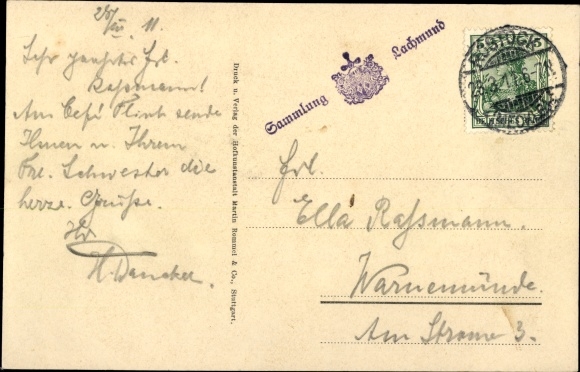 11.
Sehr geehrtes Frl.
Rassmann!
Am
sende
Ihnen u. Ihrem
Frl. Schwester die
herzl. Grüsse.
Ihr
H. Dancker.
Druck u. Verlag der Hofkunstanstalt Martin Rommel & Co., Stuttgart.
Sammlung Lachmund
ROSTOCK
Frl.
Ella Rassmann.
Warnemünde.
Am Strome 3.